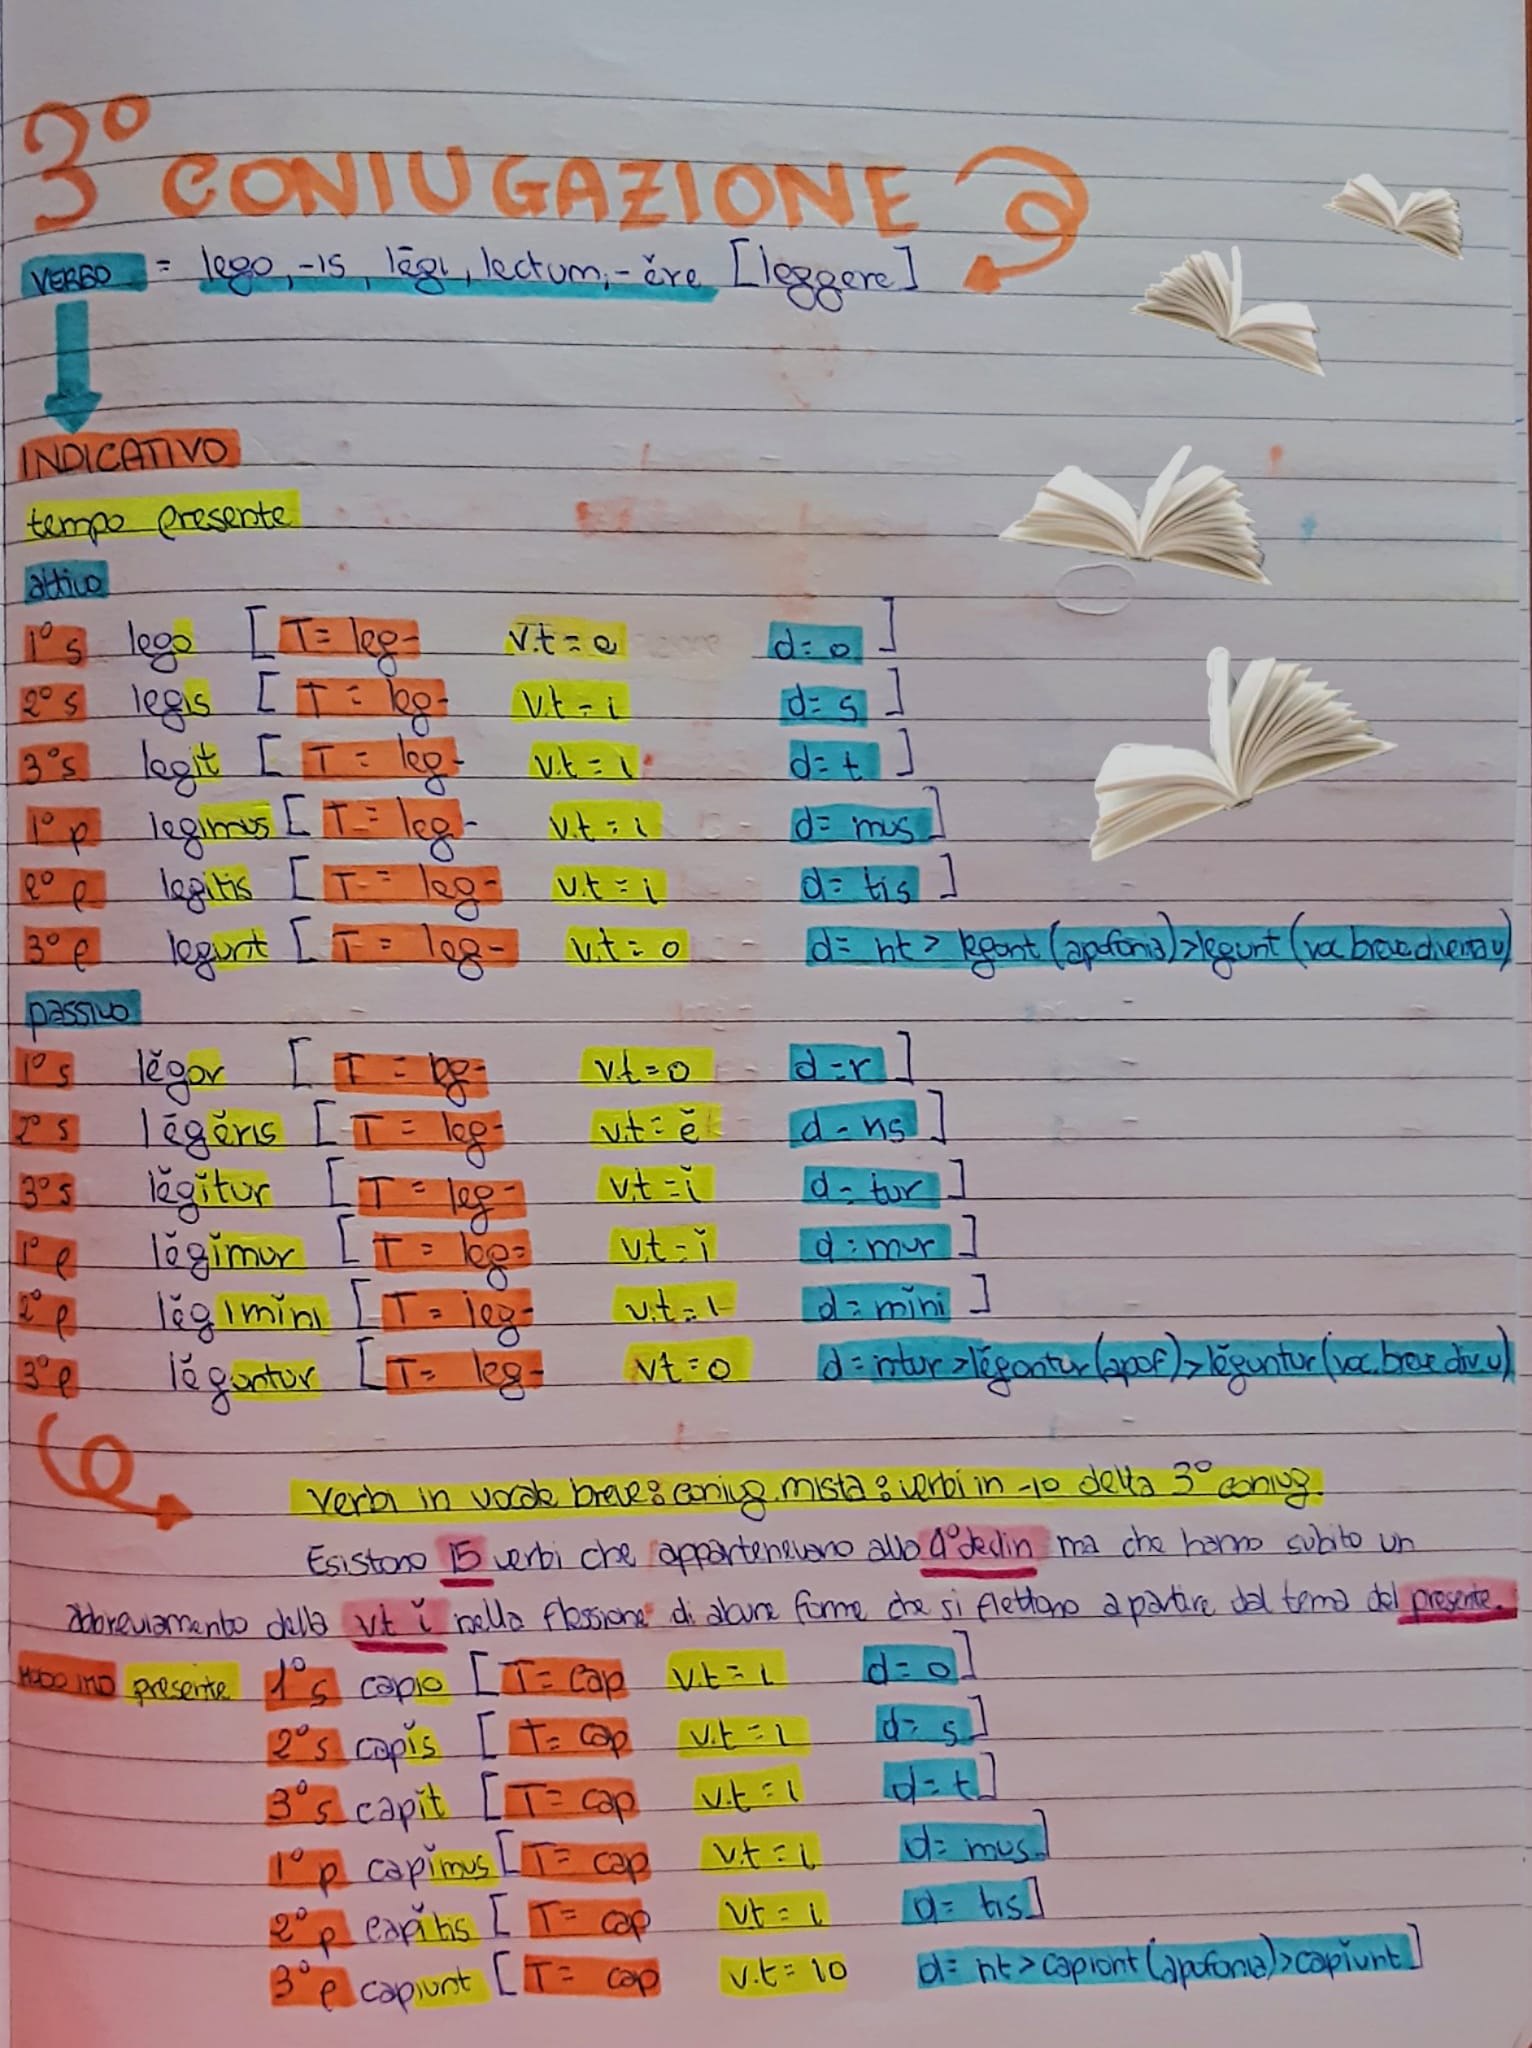 3° CONIUGAZIONE
VERBO = lego, -is, lēgi, lectum, -ĕre [leggere]
INDICATIVO
tempo presente
attivo
1° s lego [T= leg- v.t = e d= o]
2° s legis [T = leg- v.t = i d= s]
3° s legit [T = leg- v.t = i d= t]
1° p legimus [T = leg- v.t = i d= mus]
2° p legitis [T = leg- v.t = i d= tis]
3° p legunt [T = leg- v.t = o d= nt > legont (apofonia) > legunt (voc. breve diventa u)
passivo
1° s lĕgor [T = leg- v.t = o d = r]
2° s lĕgĕris [T = leg- v.t = ĕ d = ris]
3° s lĕgĭtur [T = leg- v.t = ĭ d = tur]
1° p lĕgĭmur [T = leg- v.t = ĭ d = mur]
2° p lĕgimĭni [T = leg- v.t = i d = mĭni]
3° p lĕguntur [T= leg- vt = o d = ntur > lĕgontur (apof) > lĕguntur (voc. breve div. u)
verbi in vocale breve: coniug. mista: verbi in -io della 3° coniug.
Esistono 15 verbi che appartenevano alla 4° declin ma che hanno subito un
abbreviamento della v.t ĭ nella flessione di alcune forme che si flettono a partire dal tema del presente.
MODO IND presente 1° s capio [T= cap v.t = i d= o]
2° s capĭs [T= cap v.t = i d= s]
3° s capĭt [T= cap v.t = i d= t]
1° p capĭmus [T= cap v.t = i d= mus]
2° p capĭtis [T= cap v.t = i d= tis]
3° p capiunt [T= cap v.t = io d= nt > capiont (apofonia) > capĭunt]